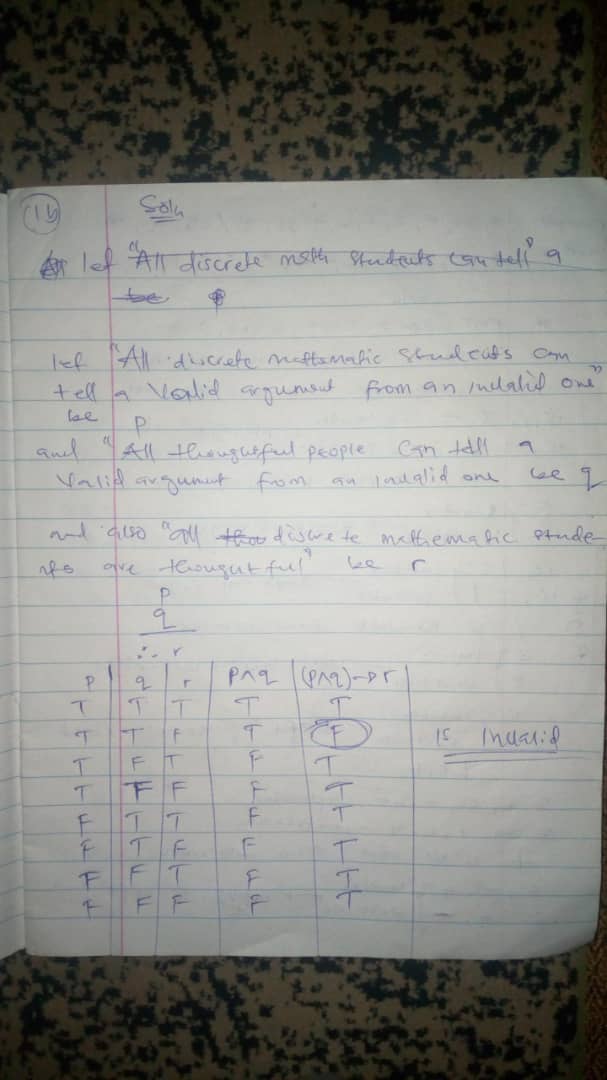 1b Soln
let "All discrete math students can tell" a
be
let "All discrete mathematic students can
tell a valid argument from an invalid one"
be p
and "All thoughtful people can tell a
valid argument from an invalid one be q
and also "all discrete mathematic stude
nts are thoughtful" be r
p
q
∴ r
p q r p∧q (p∧q)→r
T T T T T
T T F T F is invalid
T F T F T
T F F F T
F T T F T
F T F F T
F F T F T
F F F F T